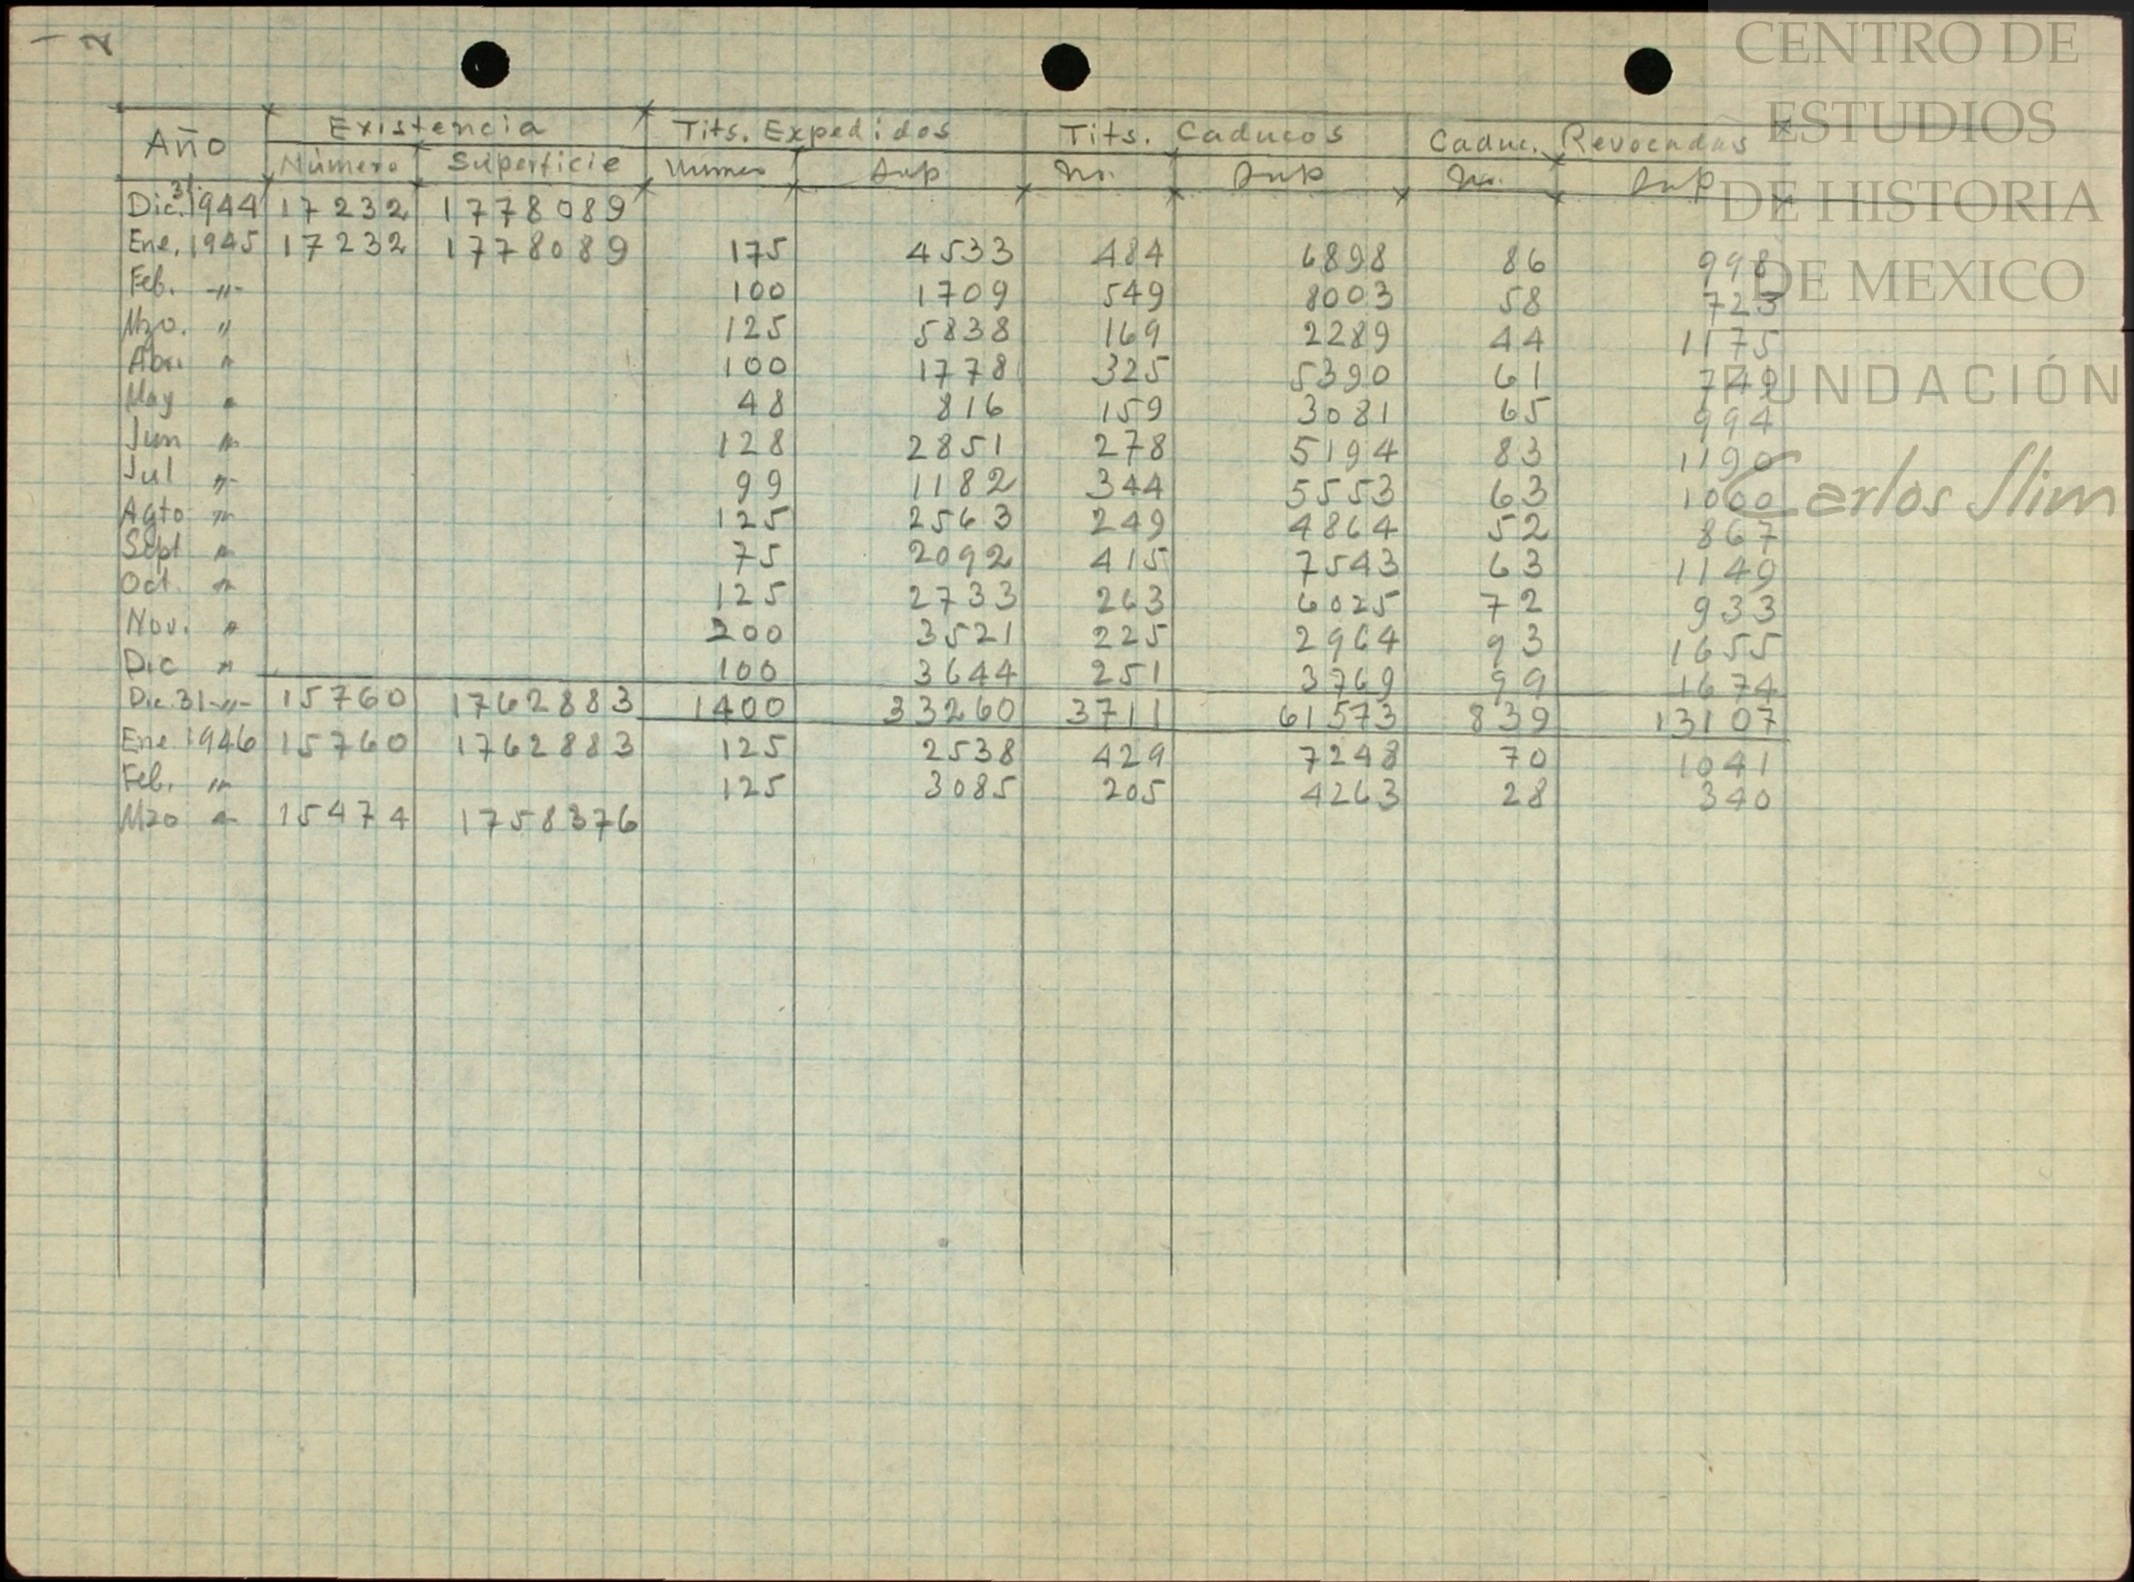 2
CENTRO DE
ESTUDIOS
DE HISTORIA
DE MEXICO
FUNDACIÓN
Carlos Slim
Año Existencia Tits. Expedidos Tits. Caducos Caduc. Revocadas
Número Superficie Numero Sup No. Sup No. Sup
Dic. 31 1944 17232 1778089
Ene. 1945 17232 1778089 175 4533 484 6898 86 998
Feb. -"- 100 1709 549 8003 58 723
Mzo. " 125 5838 169 2289 44 1175
Abr. " 100 1778 325 5390 61 749
May " 48 816 159 3081 65 994
Jun " 128 2851 278 5194 83 1190
Jul " 99 1182 344 5553 63 1000
Agto " 125 2563 249 4864 52 867
Sept " 75 2092 415 7543 63 1149
Oct. " 125 2733 263 6025 72 933
Nov. " 200 3521 225 2964 93 1655
Dic " 100 3644 251 3769 99 1674
Dic. 31 -"- 15760 1762883 1400 33260 3711 61573 839 13107
Ene 1946 15760 1762883 125 2538 429 7248 70 1041
Feb. " 125 3085 205 4263 28 340
Mzo " 15474 1758376